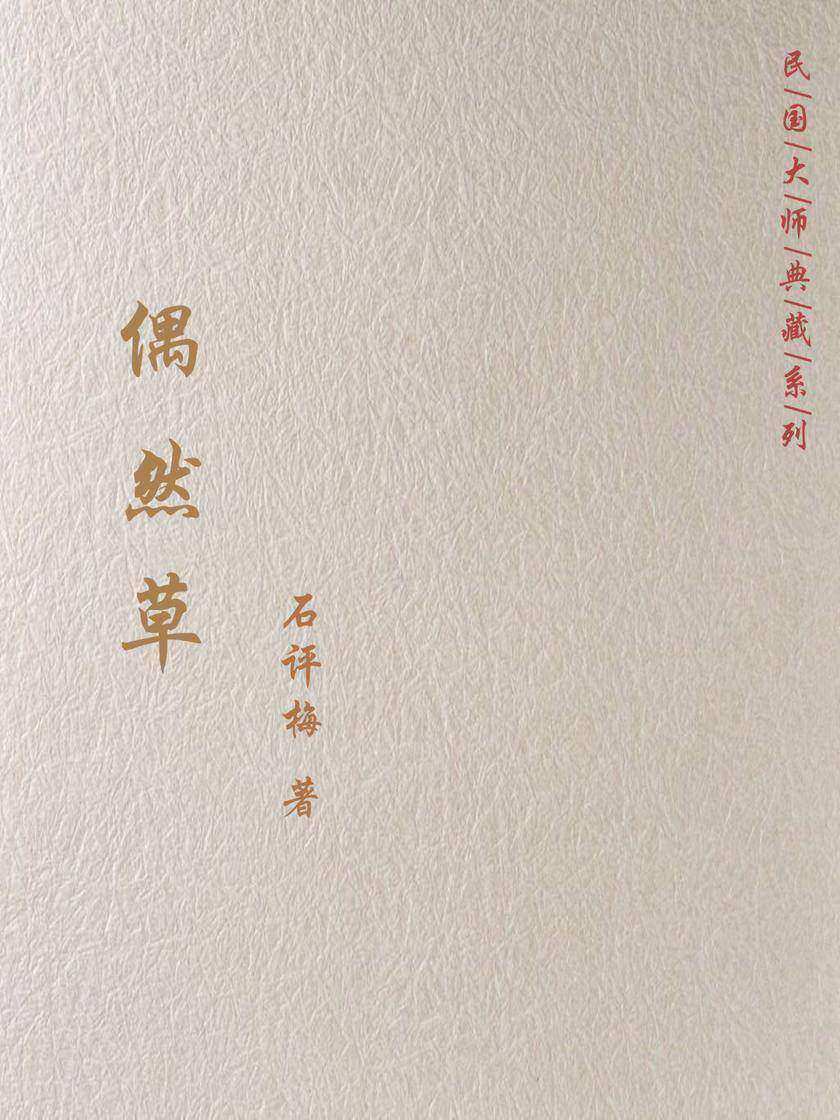 民/国/大/师/典/藏/系/列
偶然草
石评梅 著